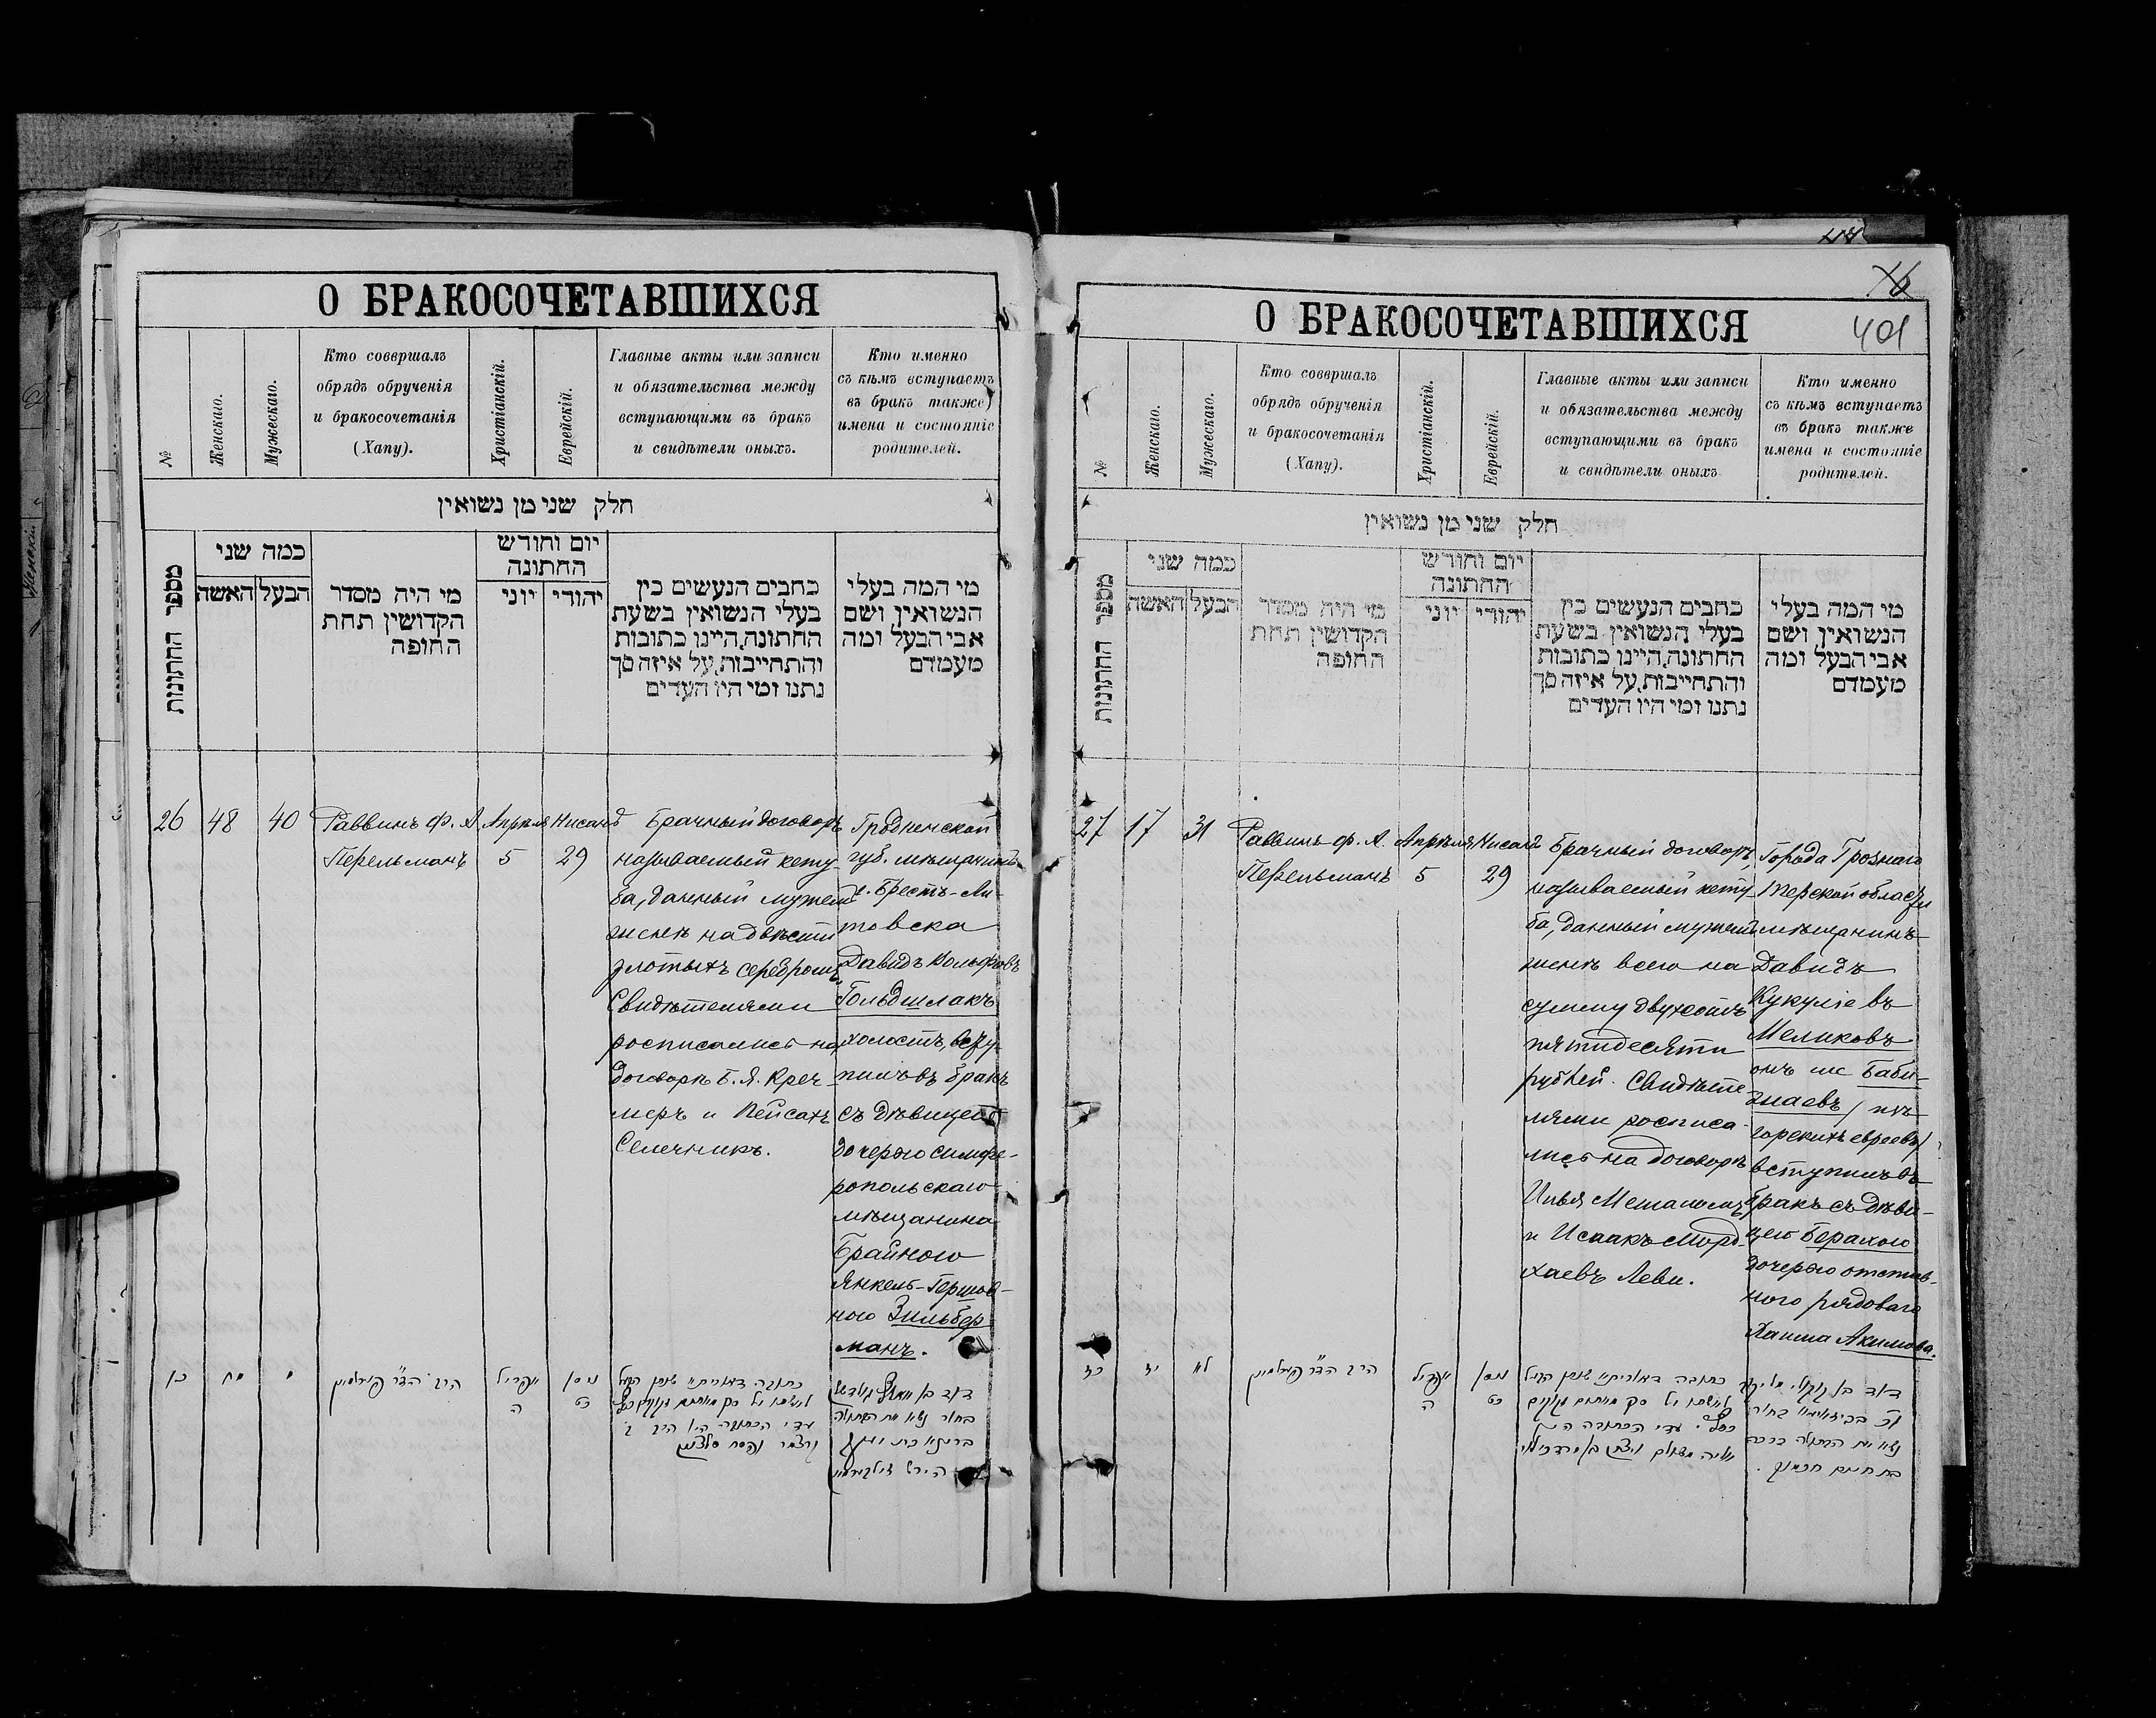 О БРАКОСОЧЕТАВШИХСЯ
№
Женскаго.
Мужескаго.
Кто совершалъ
обрядъ обрученія
и бракосочетанія
(Хапу).
Христіанскій.
Еврейскій.
Главные акты или записи
и обязательства между
вступающими въ бракъ
и свидѣтели оныхъ.
Кто именно
съ кѣмъ вступаетъ
въ бракъ также
имена и состояніе
родителей.
חלק שני מן נשואין
מספר החתונות
כמה שני
האשה
הבעל
מי היה מסדר
הקדושין תחת
החופה
יום וחודש
החתונה
יוני
יהודי
כתבים הנעשים בין
בעלי הנשואין בשעת
החתונה, היינו כתובות
והתחייבות, על איזה סך
נתנו ומי היו העדים
מי המה בעלי
הנשואין ושם
אבי הבעל ומה
מעמדם
26
48
40
Раввинъ Ф. А.
Перельманъ
Апрѣля
5
Нисанъ
29
Брачный договоръ
называемый кету-
ба, данный мужемъ
женѣ на двѣсти
злотыхъ серебромъ
Свидѣтелями
росписались на
договорѣ Б. Я. Креч-
меръ и Пейсахъ
Селечникъ.
Гродненской
губ. мѣщанинъ
г. Брестъ-Ли-
товска
Давидъ Вольфовъ
Гольдшлакъ
холостъ, всту-
пилъ въ бракъ
съ дѣвицею
дочерью симфе-
ропольскаго
мѣщанина
Брайною
Янкель-Гершов-
ною Зильбер
манъ.
כו
מח
מ
הרב הד״ר פערלמאן
אפריל
ה
ניסן
כט
401
О БРАКОСОЧЕТАВШИХСЯ
№
Женскаго.
Мужескаго.
Кто совершалъ
обрядъ обрученія
и бракосочетанія
(Хапу).
Христіанскій.
Еврейскій.
Главные акты или записи
и обязательства между
вступающими въ бракъ
и свидѣтели оныхъ
Кто именно
съ кѣмъ вступаетъ
въ бракъ также
имена и состояніе
родителей.
חלק שני מן נשואין
מספר החתונות
כמה שני
האשה
הבעל
מי היה מסדר
הקדושין תחת
החופה
יום וחודש
החתונה
יוני
יהודי
כתבים הנעשים בין
בעלי הנשואין בשעת
החתונה, היינו כתובות
והתחייבות, על איזה סך
נתנו ומי היו העדים
מי המה בעלי
הנשואין ושם
אבי הבעל ומה
מעמדם
27
17
31
Раввинъ Ф. А.
Перельманъ
Апрѣля
5
Нисанъ
29
Брачный договоръ,
называемый кету-
ба, данный мужемъ
женѣ всего на
сумму двухсотъ
пятидесяти
рублей. Свидѣте-
лями росписа-
лись на договорѣ
Илья Мешаломъ
и Исаакъ Морд-
хаевъ Леви.
Города Грознаго
Терской области
мѣщанинъ
Давидъ
Кукуліевъ
Меликовъ
онъ же Баби-
знаевъ / изъ
горскихъ евреевъ/
вступилъ въ
бракъ съ дѣви-
цею Берахою
дочерью отстав-
ного рядоваго
Хаима Акимова.
כז
יז
לא
הרב הד״ר פערלמאן
אפריל
ה
ניסן
כט